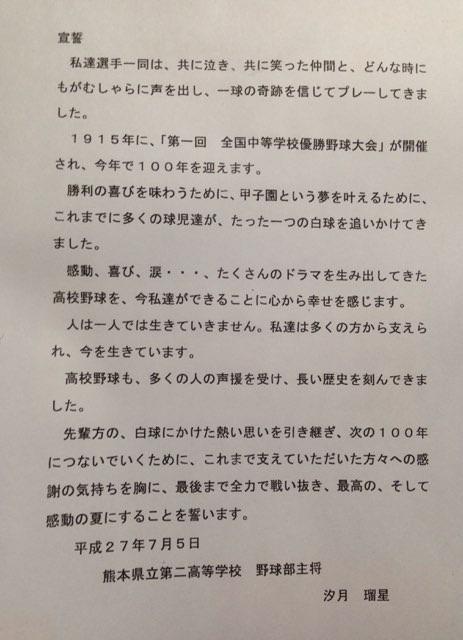 宣誓
私達選手一同は、共に泣き、共に笑った仲間と、どんな時に
もがむしゃらに声を出し、一球の奇跡を信じてプレーしてきま
した。
１９１５年に、「第一回　全国中等学校優勝野球大会」が開催
され、今年で１００年を迎えます。
勝利の喜びを味わうために、甲子園という夢を叶えるために、
これまでに多くの球児達が、たった一つの白球を追いかけてき
ました。
感動、喜び、涙・・・、たくさんのドラマを生み出してきた
高校野球を、今私達ができることに心から幸せを感じます。
人は一人では生きていきません。私達は多くの方から支えら
れ、今を生きています。
高校野球も、多くの人の声援を受け、長い歴史を刻んできま
した。
先輩方の、白球にかけた熱い思いを引き継ぎ、次の１００年
につないでいくために、これまで支えていただいた方々への感
謝の気持ちを胸に、最後まで全力で戦い抜き、最高の、そして
感動の夏にすることを誓います。
平成２７年７月５日
熊本県立第二高等学校　野球部主将
汐月　瑠星